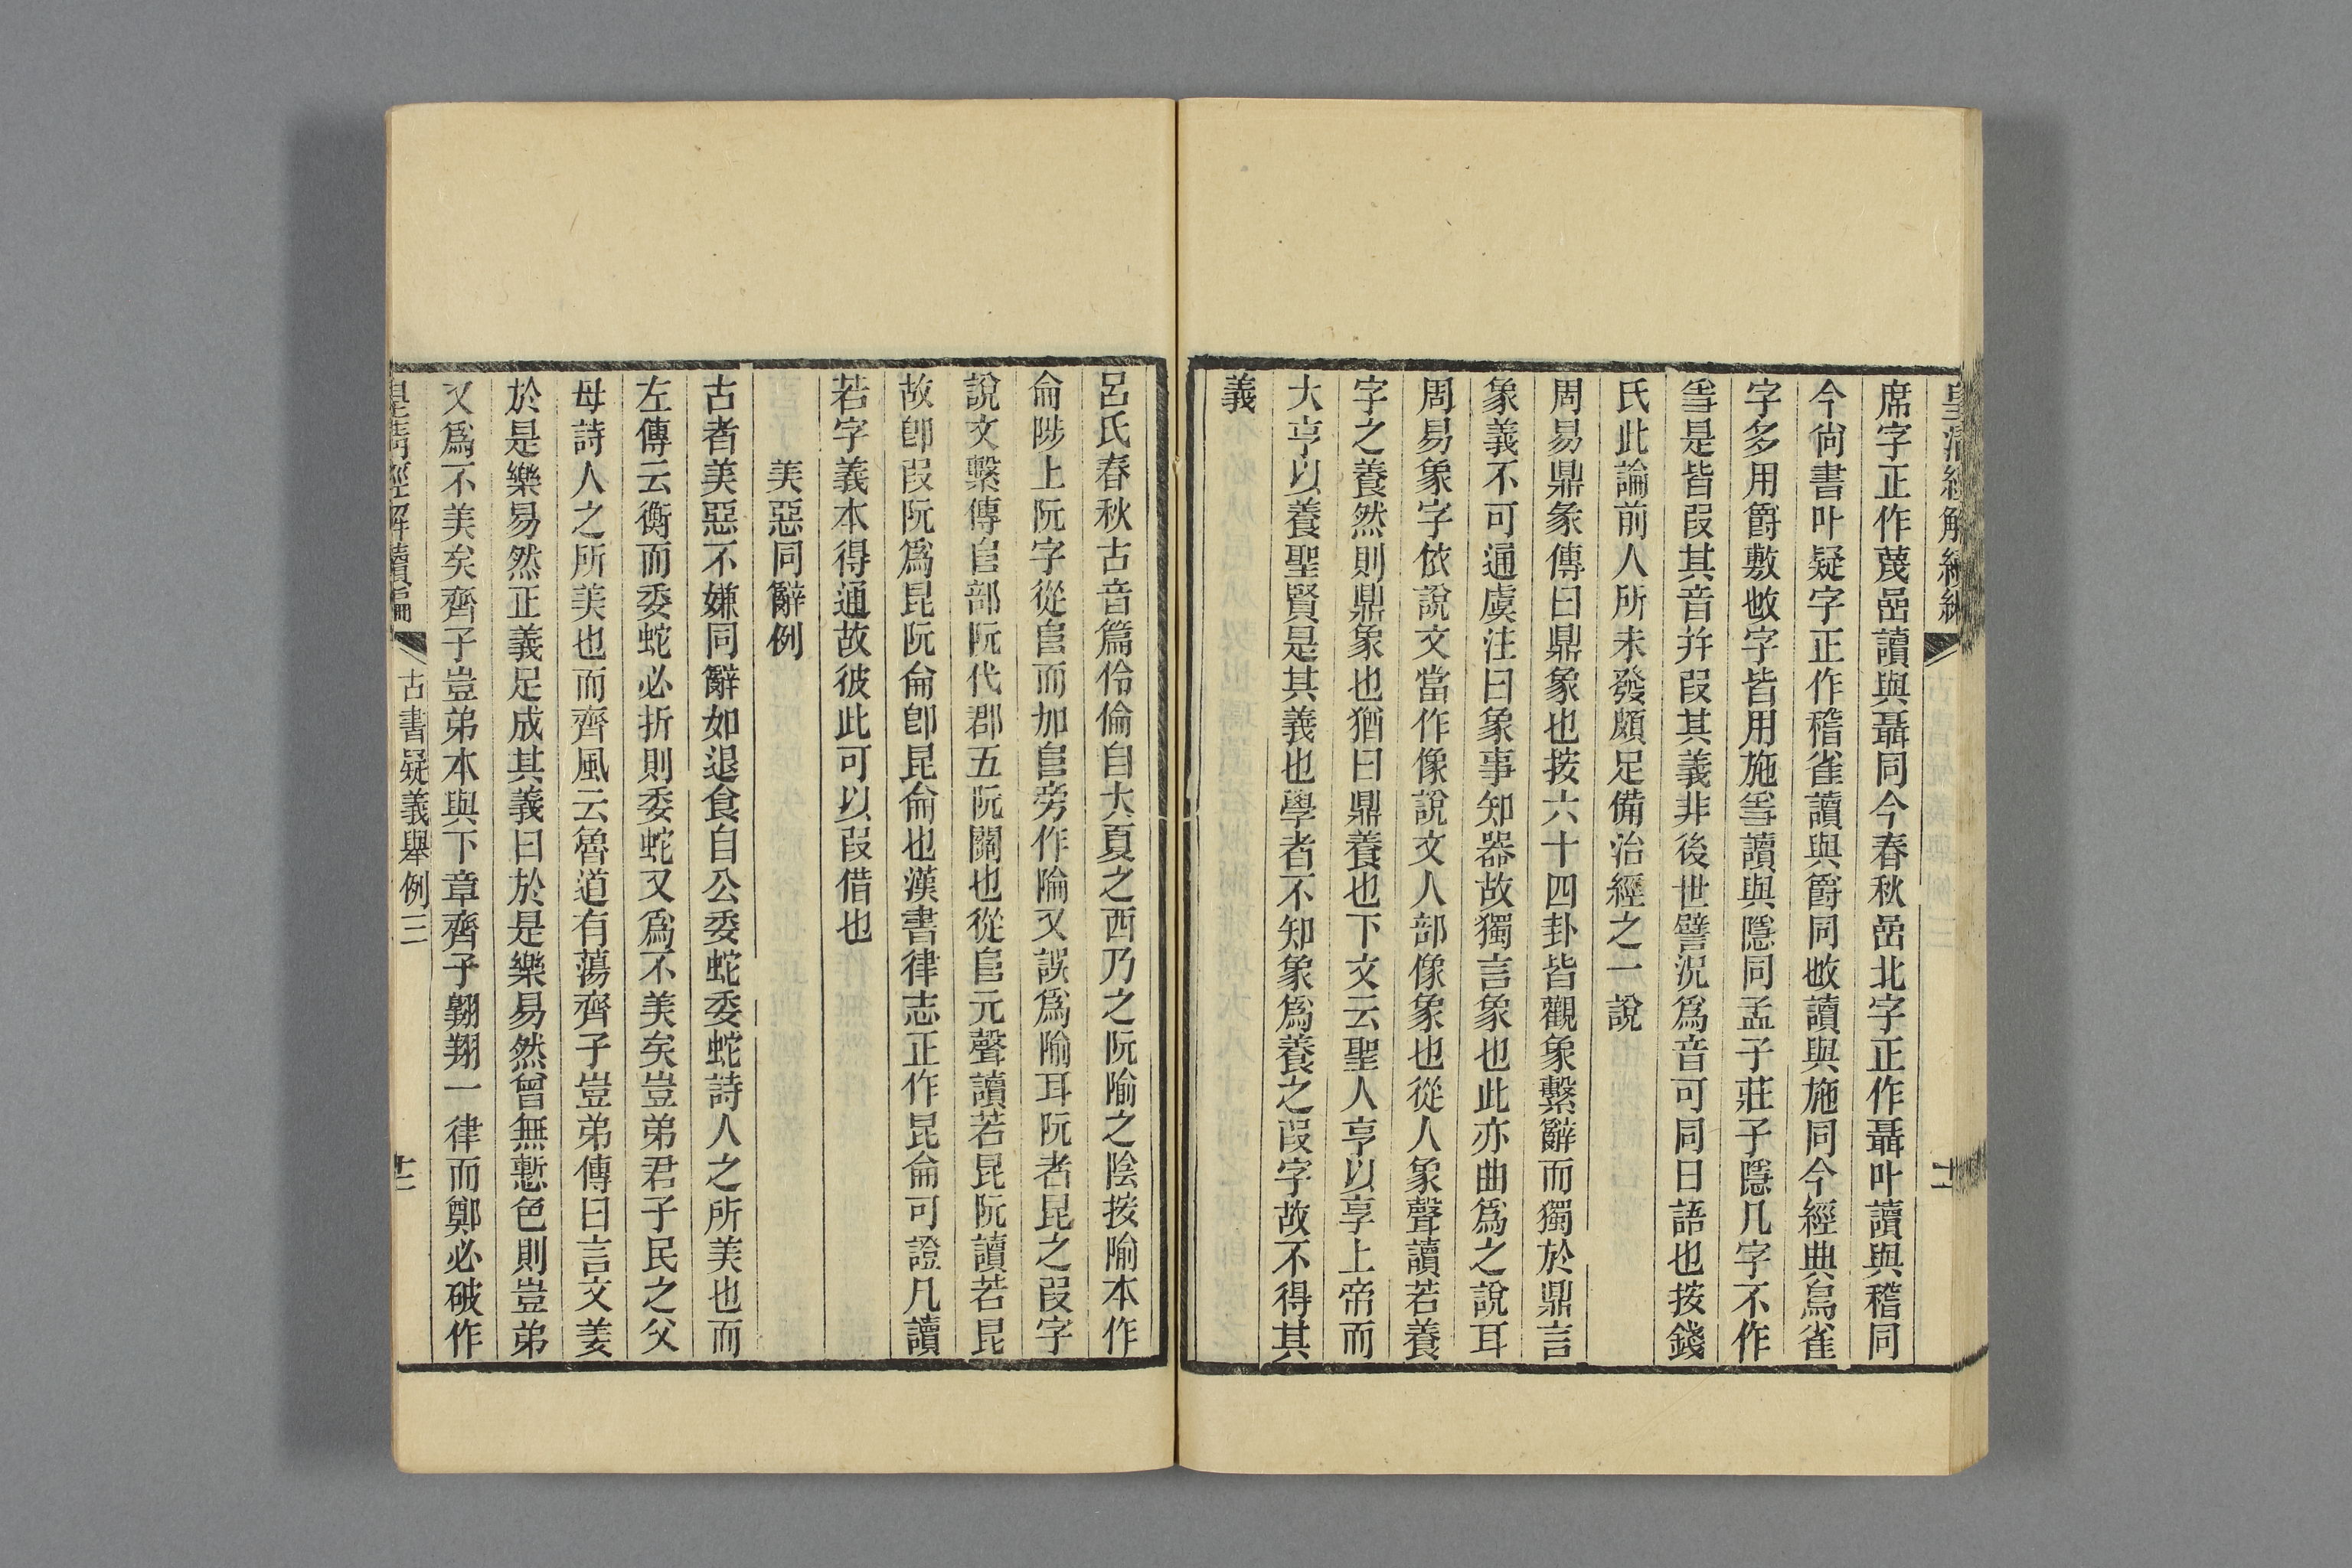 皇清經解續編
十一
席字正作蔑嵒讀與聶同今春秋嵒北字正作聶叶讀與稽同
今尙書叶疑字正作稽雀讀與爵同㪑讀與施同今經典鳥雀
字多用爵敷㪑字皆用施㞑讀與隱同孟子莊子隱几字不作
㞑是皆叚其音幷叚其義非後世譬況爲音可同日語也按錢
氏此論前人所未發頗足備治經之一說
周易鼎彖傳曰鼎象也按六十四卦皆觀象繫辭而獨於鼎言
象義不可通虞注曰象事知器故獨言象也此亦曲爲之說耳
周易象字依說文當作像說文人部像象也從人象聲讀若養
字之養然則鼎象也猶曰鼎養也下文云聖人亨以享上帝而
大亨以養聖賢是其義也學者不知象爲養之叚字故不得其
義
呂氏春秋古音篇伶倫自大夏之西乃之阮隃之陰按隃本作
侖陟上阮字從𨸏而加𨸏旁作陯又誤爲隃耳阮者昆之叚字
說文繫傳𨸏部阮代郡五阮關也從𨸏元聲讀若昆阮讀若昆
故卽叚阮爲昆阮侖卽昆侖也漢書律志正作昆侖可證凡讀
若字義本得通故彼此可以叚借也
美惡同辭例
古者美惡不嫌同辭如退食自公委蛇委蛇詩人之所美也而
左傳云衡而委蛇必折則委蛇又爲不美矣豈弟君子民之父
母詩人之所美也而齊風云魯道有蕩齊子豈弟傳曰言文姜
於是樂易然正義足成其義曰於是樂易然曾無慙色則豈弟
又爲不美矣齊子豈弟本與下章齊子翱翔一律而鄭必破作
皇淸經解續編
古書疑義舉例三
十二